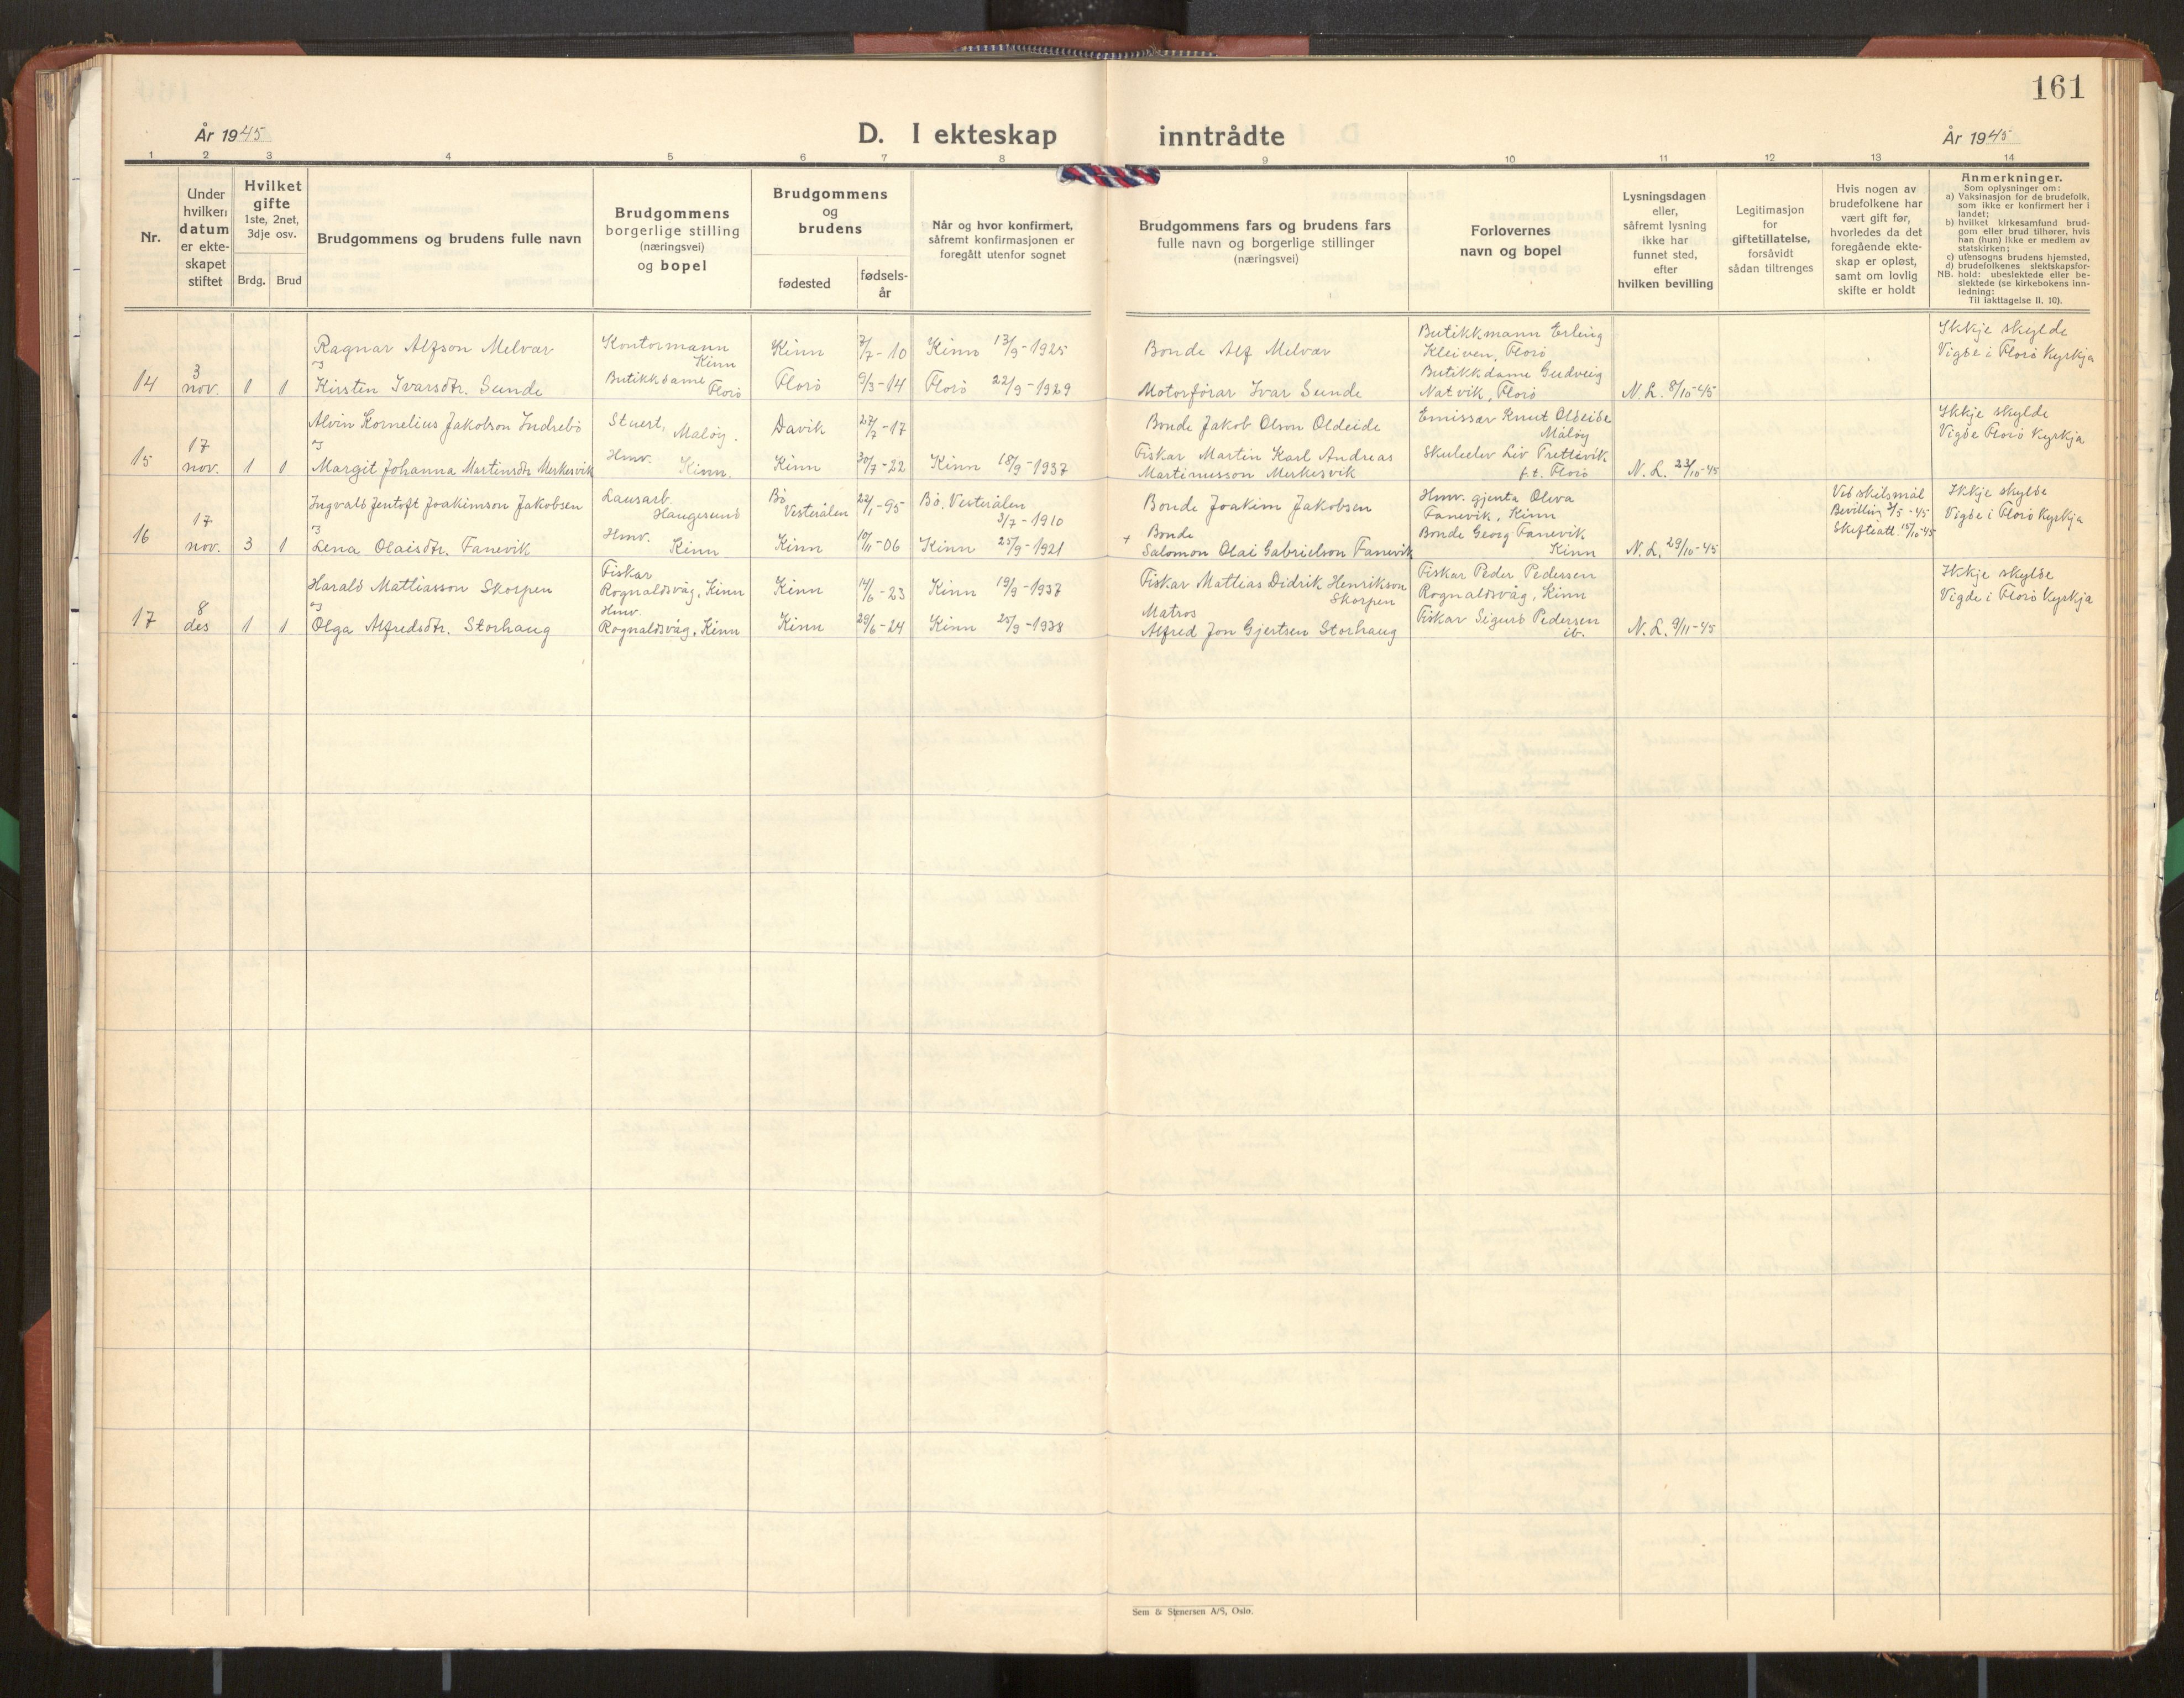 161
År 1945
D. I ekteskap inntrådte
År 1945
1 2 3 4 5 6 7 8 9 10 11 12 13 14
Nr.
Under
hvilken
datum
er ekte-
skapet
stiftet
Hvilket
gifte
1ste, 2net,
3dje osv.
Brdg. Brud
Brudgommens og brudens fulle navn
Brudgommens
borgerlige stilling
(næringsvei)
og bopel
Brudgommens
og
brudens
fødested
fødsels-
år
Når og hvor konfirmert,
såfremt konfirmasjonen er
foregått utenfor sognet
Brudgommens fars og brudens fars
fulle navn og borgerlige stillinger
(næringsvei)
Forlovernes
navn og bopel
Lysningsdagen
eller,
såfremt lysning
ikke har
funnet sted,
efter
hvilken bevilling
Legitimasjon
for
giftetillatelse,
forsåvidt
sådan tiltrenges
Hvis nogen av
brudefolkene har
vært gift før,
hvorledes da det
foregående ekte-
skap er opløst,
samt om lovlig
skifte er holdt
Anmerkninger.
Som oplysninger om:
a) Vaksinasjon for de brudefolk,
som ikke er konfirmert her i
landet;
b) hvilket kirkesamfund brud-
gom eller brud tilhører, hvis
han (hun) ikke er medlem av
statskirken;
c) utensogns brudens hjemsted,
d) brudefolkenes slektskapsfor-
NB. hold: ubeslektede eller be-
slektede (se kirkebokens inn-
ledning:
Til iakttagelse II. 10).
14
3
nov.
1 1
Ragnar Alfson Melvær
og
Kirsten Ivarsdtr. Sunde
Kontormann
Kinn
Butikkdame
Florø
Kinn 7/7-10 Kinn 13/9-1925
Florø 9/3-14 Florø 22/9-1929
Bonde Alf Melvær
Motorførar Ivar Sunde
Butikkmann Erling
Kleiven, Florø
Butikkdame Gudveig
Natvik, Florø
N. L. 8/10-45
Ikkje skylde
Vigde i Florø Kyrkja
15
17
nov.
1 1
Alvin Kornelius Jakobson Indrebø
og
Margit Johanna Martinsdtr Merkesvik
Stuert,
Måløy.
Hmv.
Kinn.
Davik 27/7-17
Kinn 30/7-22 Kinn 18/9-1937
Bonde Jakob Olson Oldeide
Fiskar Martin Karl Andreas
Martinusson Merkesvik
Emissær Knut Oldeide
Måløy
Skuleelev Liv Trettevik
f.t. Florø
N. L. 23/10-45
Ikkje skylde
Vigde Florø Kyrkja
16
17
nov.
3 1
Ingvald Jentoft Joakimson Jakobsen
og
Lena Olaisdtr. Fanevik
Lausarb.
Haugesund
Hmv.
Kinn
Bø
Vesterålen
22/1-95
Bø, Vesterålen
3/7-1910
Kinn 10/11-06 Kinn 25/9-1921
Bonde Joakim Jakobsen
+ Bonde
Salomon Olai Gabrielson Fanevik
Hmv. gjenta Oliva
Fanevik, Kinn
Bonde Georg Fanevik
Kinn
N. L. 29/10-45
Ved skilsmål
Bevilling 2/5-45
Skifteatt. 15/10-45
Ikkje skylde
Vigde i Florø Kyrkja
17
8
des
1 1
Harald Mattiasson Skorpen
og
Olga Alfredsdtr. Storhaug
Fiskar
Rognaldsvåg, Kinn
Hmv.
Rognaldsvåg, Kinn
Kinn 14/6-23 Kinn 19/9-1937
Kinn 29/6-24 Kinn 25/9-1938
Fiskar Mattias Didrik Henrikson
Skorpen
Matros
Alfred Jon Gjertsen Storhaug
Fiskar Peder Pedersen
Rognaldsvåg, Kinn
Fiskar Sigurd Pedersen
ib.
N. L. 9/11-45
Ikkje skylde
Vigde i Florø Kyrkja
Sem & Stenersen A/S, Oslo.